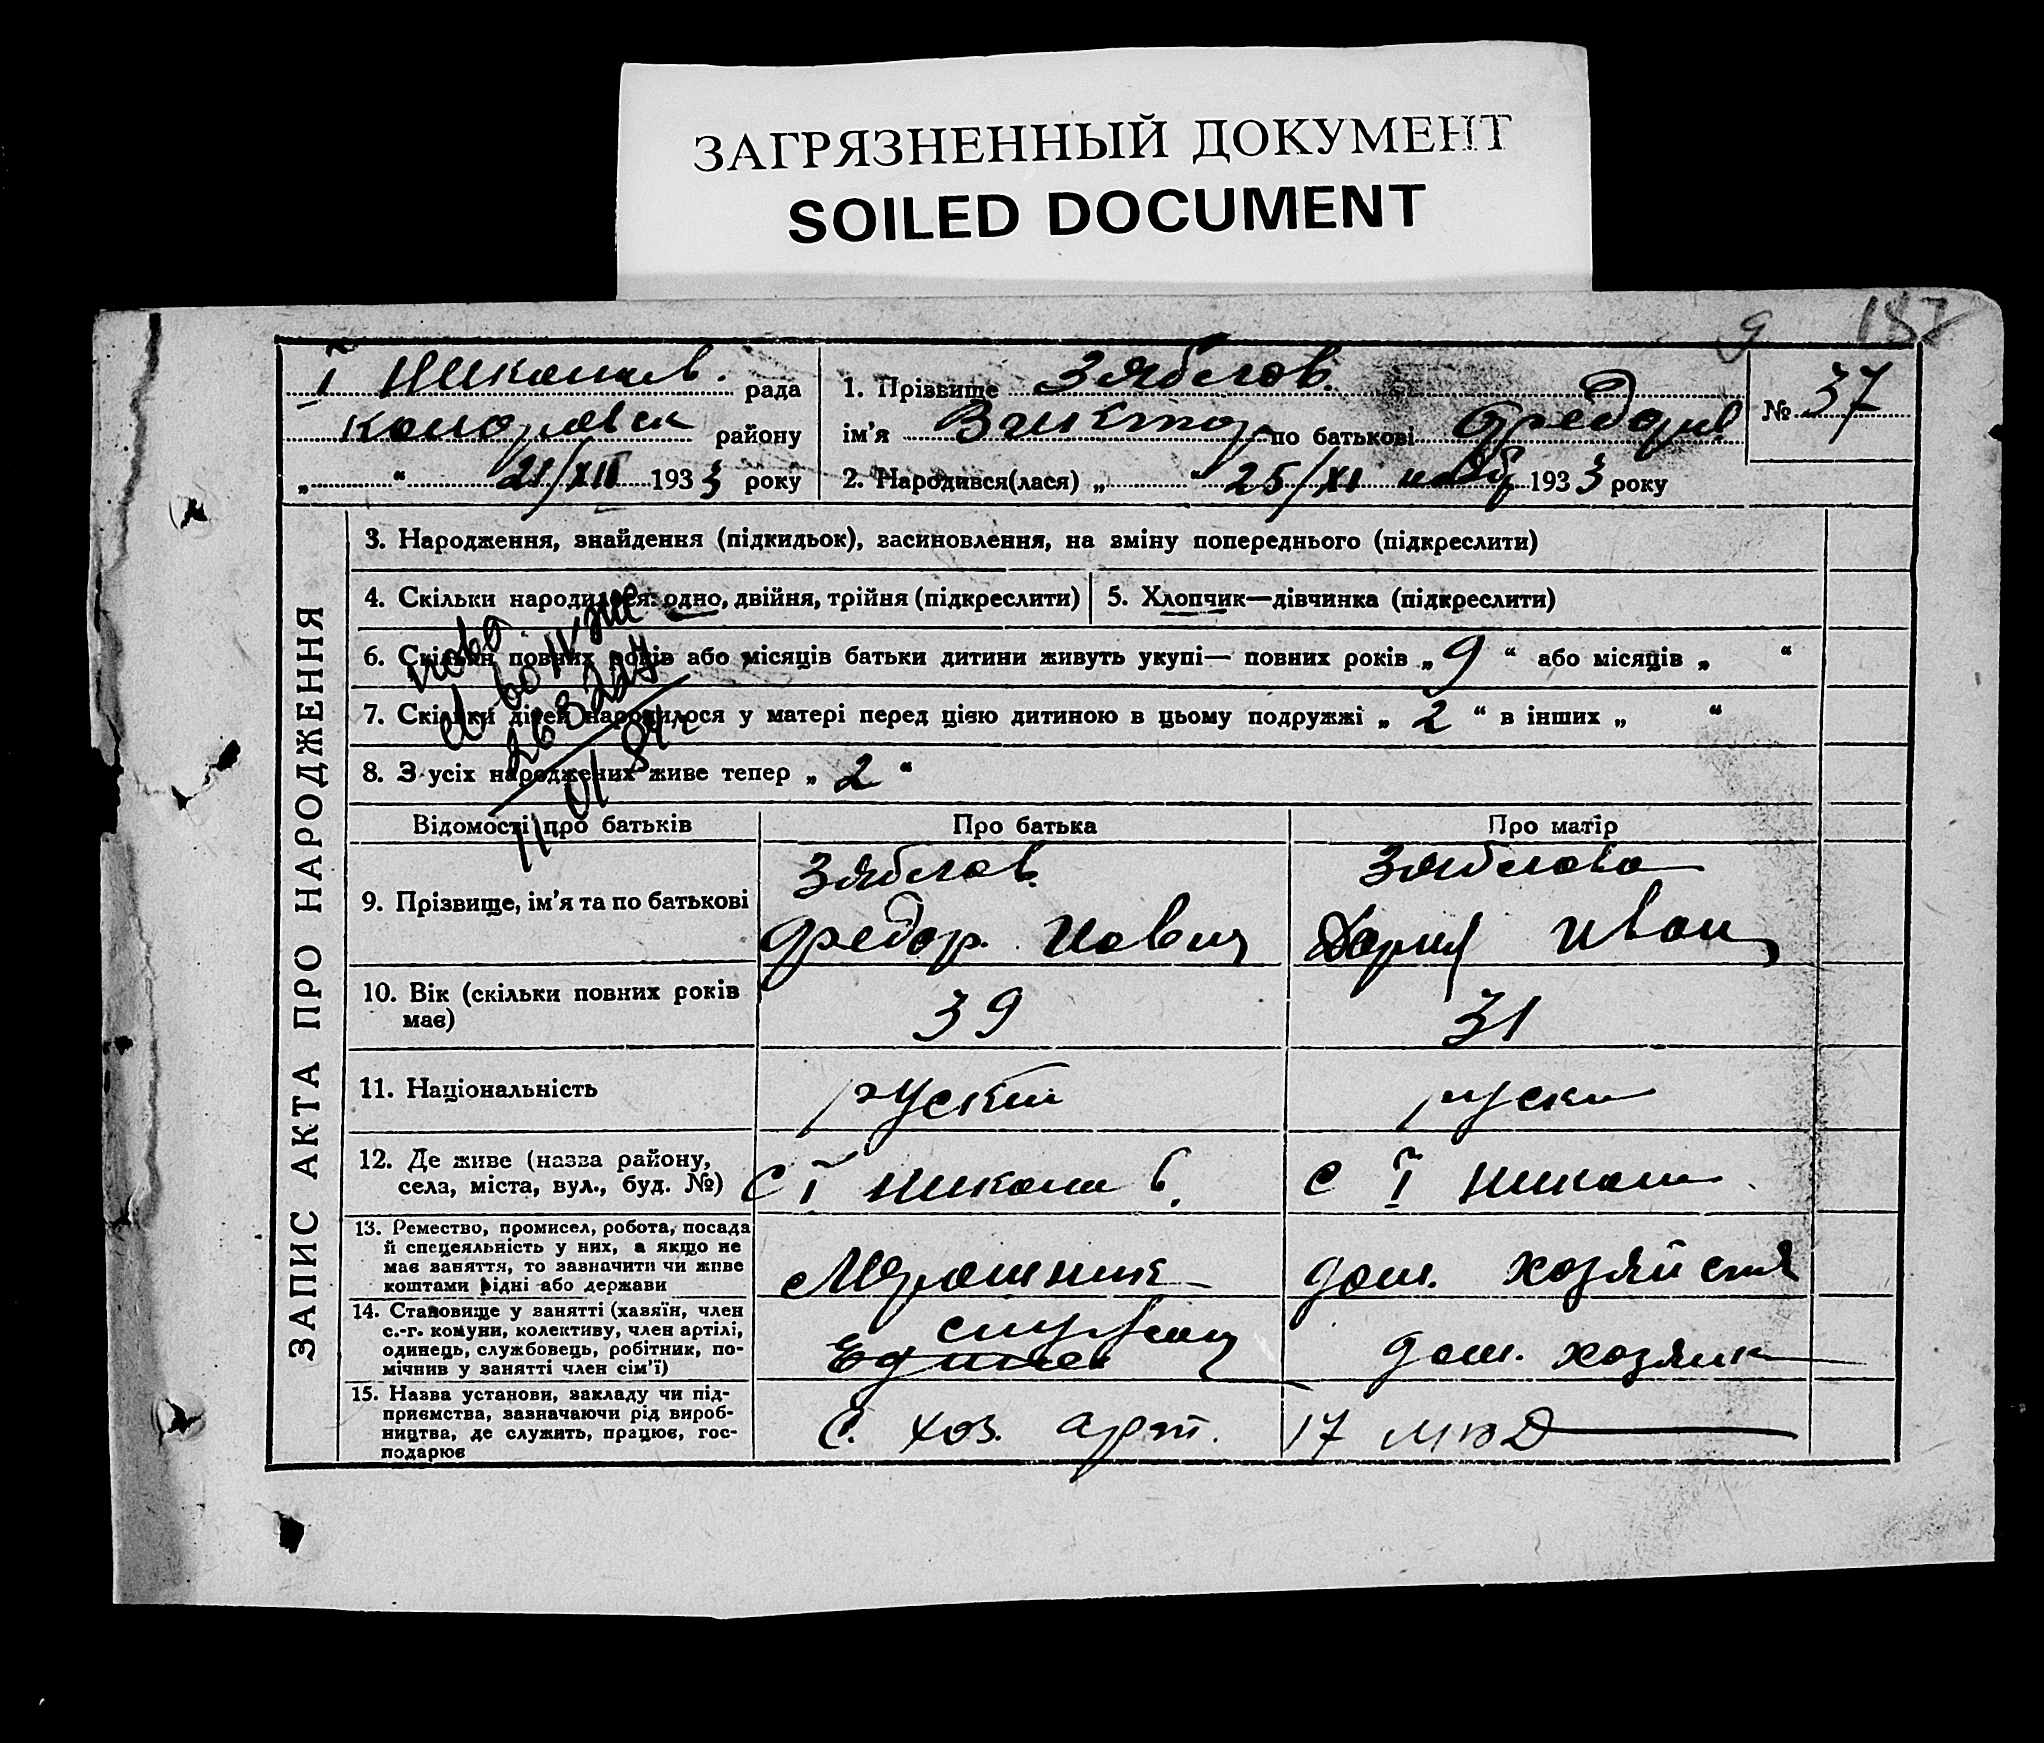 ЗАГРЯЗНЕННЫЙ ДОКУМЕНТ
SOILED DOCUMENT
9
I рада
району
„ “ 21/XII 1933 року
1. Прізвище Зяблов.
ім’я Виктор по батькові Федор
2. Народився(лася) „ “ 25/XI 1933 року
№ 37
ЗАПИС АКТА ПРО НАРОДЖЕННЯ
3. Народження, знайдення (підкидьок), засиновлення, на зміну попереднього (підкреслити)
4. Скільки народилося: одно, двійня, трійня (підкреслити)
5. Хлопчик—дівчинка (підкреслити)
6. Скільки повних років або місяців батьки дитини живуть укупі— повних років „ 9 “ або місяців „ “
7. Скільки дітей народилося у матері перед цією дитиною в цьому подружжі „ 2 “ в інших „ “
8. З усіх народжених живе тепер „ 2 “
Відомості про батьків
Про батька
Про матір
9. Прізвище, ім’я та по батькові
Зяблов.
Федор.
Зяблова
Дария Иван
10. Вік (скільки повних років
має)
39
31
11. Національність
руский
руски
12. Де живе (назва району,
села, міста, вул., буд. №)
с I
с I
13. Ремество, промисел, робота, посада
й спецеяльність у них, а якщо не
має заняття, то зазначити чи живе
коштами рідні або держави
дом. хозяйства
14. Становище у занятті (хазяїн, член
с.-г. комуни, колективу, член артілі,
одинець, службовець, робітник, по-
мічнив у занятті член сім’ї)
дом. хозяик
15. Назва установи, закладу чи під-
приємства, зазначаючи рід вироб-
ництва, де служить, працює, гос-
подарює
С. хоз. арт.
17